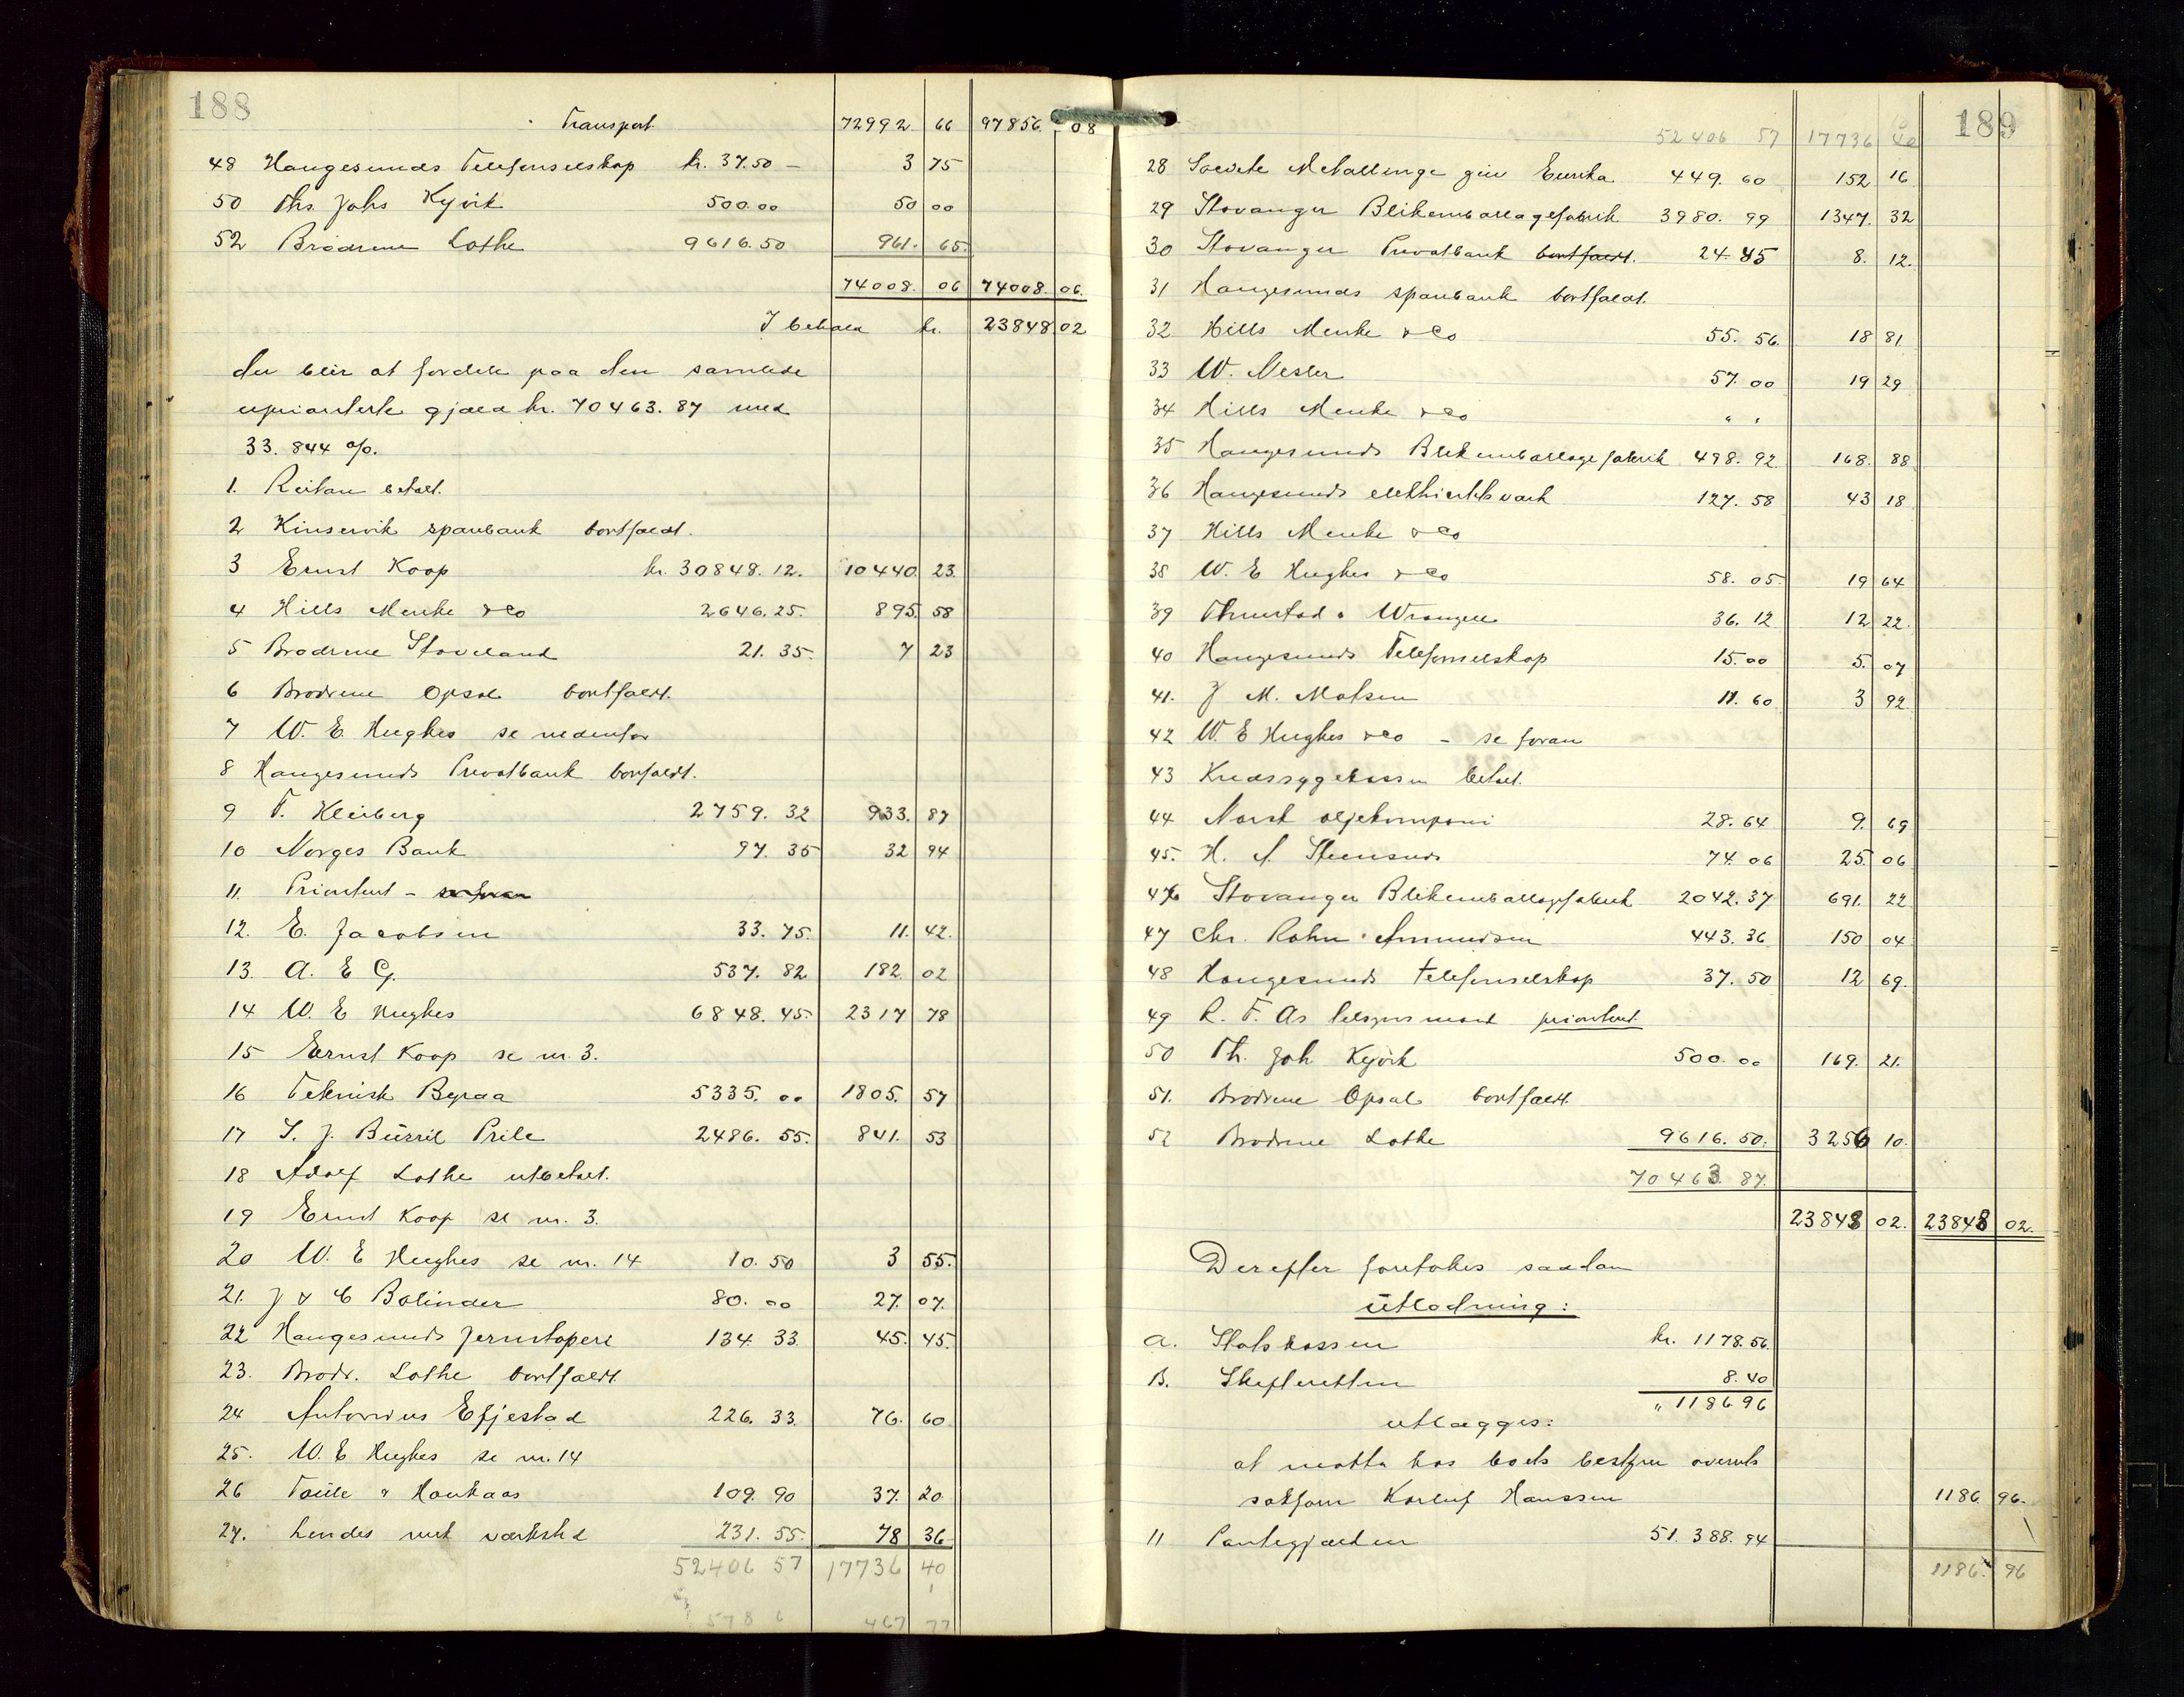 188
Transport. 72992. 66 97856. 08
48 Haugesunds Telefonselskap kr. 37.50 – 3 75
50 Ths. Johs Kyvik 500.00 50 00
52 Brødrene Lothe 9616.50 961. 65.
74008. 06 74008. 06.
I behold kr. 23848 02
der blir at fordele paa den samlede
upriorterte gjæld kr. 70463.87 med
33.844 %.
1. Reitan betalt.
2 Kinservik sparebank bortfaldt.
3 Ernst Koop kr. 30848.12. 10440 23.
4 Hills Menke & Co 2646.25. 895. 58
5 Brødrene Stoveland 21.35. 7 23
6 Brødrene Opsal bortfaldt.
7 W. E. Hughes se nedenfor
8 Haugesunds Privatbank bortfaldt.
9 T. Kleiberg 2759.32 933. 87
10 Norges Bank 97.35 32 94
11. Prioritert – se foran
12. E. Jacobsen 33.75. 11. 42.
13. A. E G. 537.82 182. 02
14 W. E Hughes 6848.45. 2317 78
15 Ernst Koop se nr. 3.
16 Teknisk Byraa 5335.00 1805. 57
17 S. J. Bürril Prile 2486.55. 841. 53
18 Adolf Lothe utbetalt.
19 Ernst Koop se nr. 3.
20 W. E Hughes se nr. 14 10.50 3 55.
21. J & C Bolinder 80.00 27. 07.
22 Haugesunds Jernstøperi 134.33. 45. 45.
23. Brødr. Lothe bortfaldt.
24 Antonius Efjestad 226.33. 76. 60.
25. W. E Hughes se nr. 14
26 Taule & Haukaas 109.90 37. 20
27. Lindes mek værksted 231.55. 78 36
52406 57 17736 40
578 6 467 77
189
52406 57 17736 40
28 Soevete Metallinge giu Eureka 449.60 152 16
29 Stavanger Blikemballagefabrik 3980.99 1347. 32
30 Stavanger Privatbank bortfaldt. 24.85 8. 12.
31 Haugesunds sparebank bortfaldt.
32 Hills Menke & Co 55.56. 18 81.
33 W. Nesler 57.00 19 29
34 Hills Menke & Co " "
35 Haugesunds Blikemballagefabrik 498.92 168. 88
36 Haugesunds elektricitetsverk 127.58 43 18
37 Hills Menke & Co
38 W. E Hughes & Co 58.05. 19 64
39 Thunstad & Wrangell 36.12 12 22.
40 Haugesunds Telefonselskap 15.00 5. 07
41. J M. Matsen 11.60 3 92.
42 W. E Hughes & Co – se foran
43 Kredssygekassen betalt.
44 Norsk oljekompani 28.64 9. 69
45. H. A Steensnes 74.06 25. 06
46 Stavanger Blikemballagefabrik 2042.37 691. 22
47 Chr. Rohn Amundsen 443.36 150 04
48 Haugesunds telefonselskap 37.50 12 69.
49 R. F. As prioritert.
50 Th. Joh Kyvik 500.00 169. 21.
51. Brødrene Opsal bortfaldt.
52 Brødrene Lothe 9616.50. 3256 10.
70463.87.
23848 02. 23848 02.
Derefter foretokes saadan
utlodning:
A. Statskassen kr. 1178.56.
B. Skifteretten 8.40
" 1186.96
utlægges:
at motta hos boets bestyrer overrets
sakfører Karluf Hanssen 1186. 96.
11 Pantegjælden 51.388.94
1186. 96